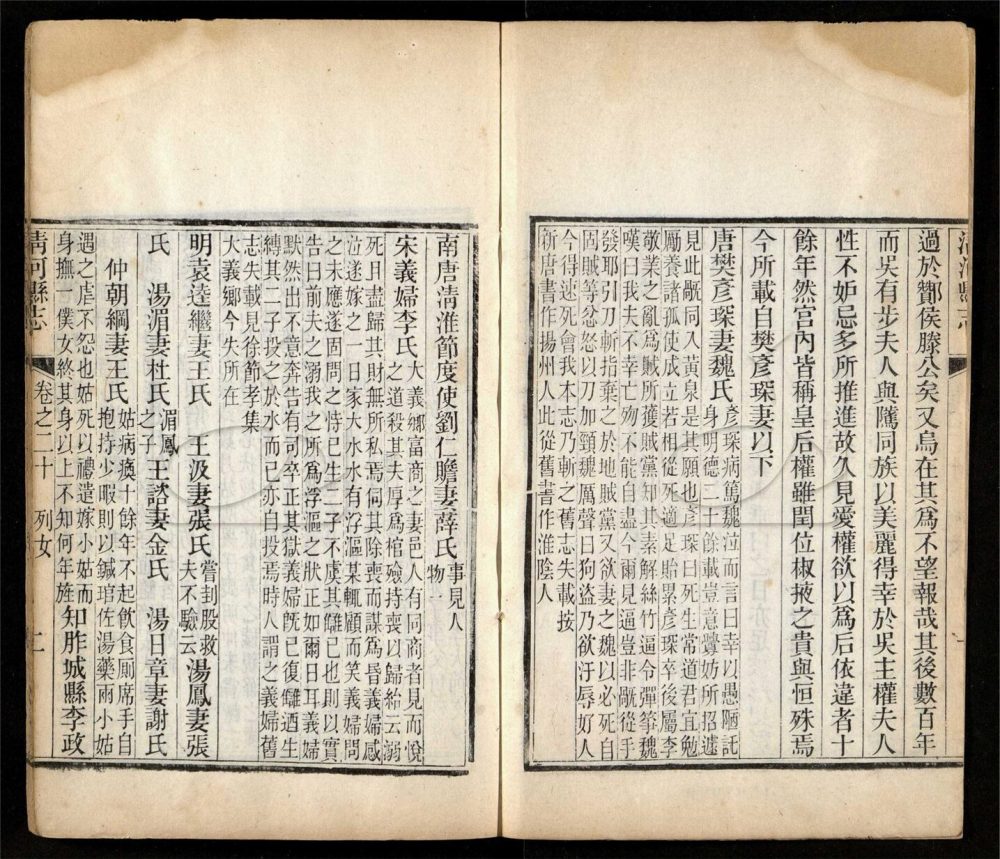 清河縣志
過於酇侯滕公矣又烏在其爲不望報哉其後數百年
而吳有步夫人與隲同族以美麗得幸於吳主權夫人
性不妒忌多所推進故久見愛權欲以爲后依違者十
餘年然宮內皆稱皇后權雖閏位椒掖之貴與恒殊焉
今所載自樊彥琛妻以下
唐樊彥琛妻魏氏彥琛病篤魏泣而言曰幸以愚陋託
身明德二十餘載豈意釁妨所招遽
見此敵同入黃泉是其願也彥琛曰死生常道君宜勉
勵養諸孤使成立若相從死適足貽累彥琛卒後屬李
敬業之亂爲賊所獲賊黨知其素解絲竹逼令彈箏魏
嘆曰我夫不幸亡歿不能自盡今爾見逼豈非敵從手
發耶引刀斬指棄之於地賊黨又欲妻之魏以必死自
固賊等忿怒以刀加頸魏厲聲曰狗盜乃欲汙辱好人
今得速死會我本志乃斬之舊志失載按
新唐書作揚州人此從舊書作淮陰人
南唐淸淮節度使劉仁贍妻薛氏事見人
物
宋義婦李氏大義鄉富商之妻邑人有同商者見而悅
之道殺其夫厚爲棺殮持喪以歸紿云溺
死且盡歸其財無所私焉伺其除喪而謀爲昏義婦感
泣遂嫁之一日家大水水有浮漚某輒顧而笑義婦問
之未應遂固問之恃已生二子不虞其讎己也則以實
告曰前夫之溺我之所爲浮漚之狀正如爾日耳義婦
默然出不意奔告有司卒正其獄義婦旣已復讎迺生
縛其二子投之於水而已亦自投焉時人謂之義婦舊
志失載見徐節孝集
大義鄉今失所在
明袁逵繼妻王氏　王汲妻張氏嘗刲股救
夫不驗云湯鳳妻張
氏　湯湄妻杜氏湄鳳
之子王諮妻金氏　湯日章妻謝氏
仲朝綱妻王氏姑病瘓十餘年不起飲食厠席手自
抱持少暇則以鍼琯佐湯藥兩小姑
遇之虐不怨也姑死以禮遣嫁小姑而
身撫一僕女終其身以上不知何年旌知胙城縣李政
清河縣志　卷之二十　列女　二